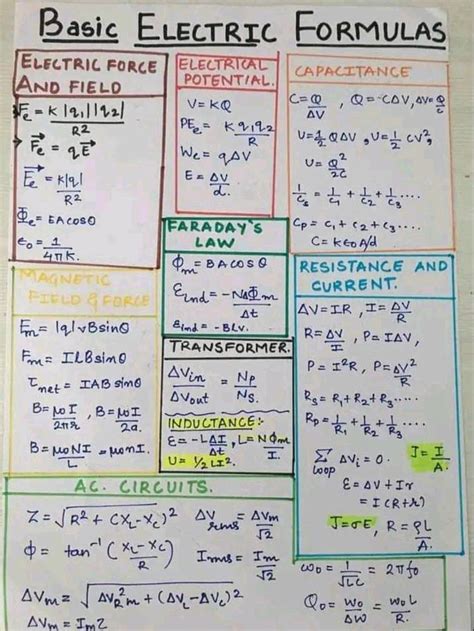 Basic Electric Formulas
ELECTRIC FORCE
AND FIELD
Fe = K|q1||q2| / R²
→ F⃗e = qE⃗
E⃗e = K|q| / R²
Φe = EACosθ
ε0 = 1 / 4πK.
ELECTRICAL
POTENTIAL.
V = KQ
PEe = Kq1q2 / R
We = qΔV
E = ΔV / d.
CAPACITANCE
C = Q / ΔV , Q = CΔV, ΔV = Q / C
U = 1/2 QΔV , U = 1/2 CV²,
U = Q² / 2C
1/Cs = 1/C1 + 1/C2 + 1/C3 ....
Cp = C1 + C2 + C3 ....
C = Kε0A/d
FARADAY'S
LAW
Φm = BACOSθ
Eind = -NΔΦm / Δt
Eind = -BLV.
MAGNETIC
FIELD & FORCE
Fm = |q|vBsinθ
Fm = ILBsinθ
τnet = IABsinθ
B = μ0I / 2πr , B = μ0I / 2a.
B = μ0NI / L = μ0nI
TRANSFORMER.
ΔVin / ΔVout = NP / NS.
INDUCTANCE:-
E = -LΔI / Δt , L = NΦm / I.
U = 1/2LI²
RESISTANCE AND
CURRENT.
ΔV = IR , I = ΔV / R
R = ΔV / I , P = IΔV,
P = I²R , P = ΔV² / R
Rs = R1 + R2 + R3....
Rp = 1/R1 + 1/R2 + 1/R3....
∑loop ΔVi = 0. J = I / A.
E = ΔV + Ir
= I(R+r)
J = σE , R = ρL / A.
AC. CIRCUITS.
Z = √R² + (XL-XC)² ΔVrms = ΔVm / √2
Φ = tan⁻¹ (XL-XC / R) Irms = Im / √2
ΔVm = √ΔVR²m + (ΔVL - ΔVC)²
ΔVm = ImZ
ω0 = 1 / √LC = 2πf0
Q0 = ω0 / Δω = ω0L / R